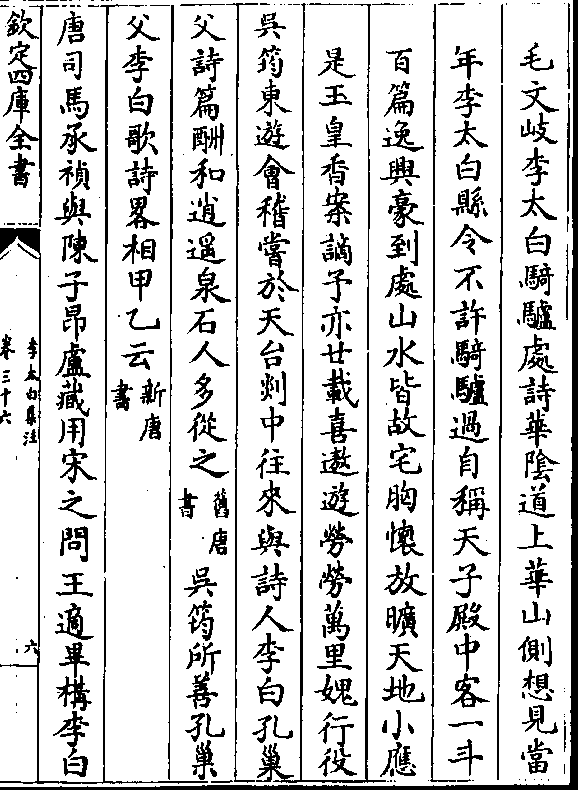 毛文岐李太白騎驢處詩華陰道上華山側想見當
年李太白縣令不許騎驢過自稱天子殿中客一斗
百篇逸興豪到處山水皆故宅胸懷放曠天地小應
是玉皇香案謫予亦廿載喜遨遊勞勞萬里媿行役
吳筠東遊會稽嘗於天台剡中往來與詩人李白孔巢
父詩篇酬和逍遥泉石人多從之舊唐書吳筠所善孔巢
父李白歌詩畧相甲乙云新唐書
唐司馬承禎與陳子昂盧藏用宋之問王適畢構李白
欽定四庫全書
李太白集注
卷三十六
六